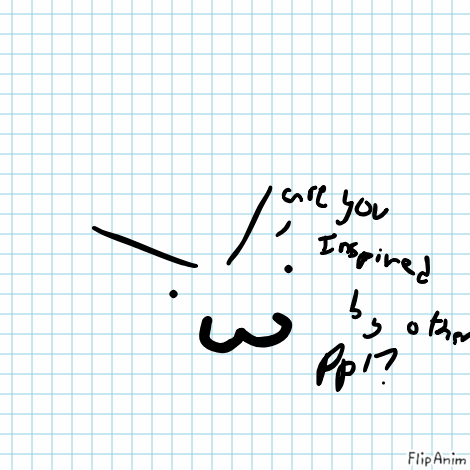 are you
Inspired
by other
ppl?
FlipAnim